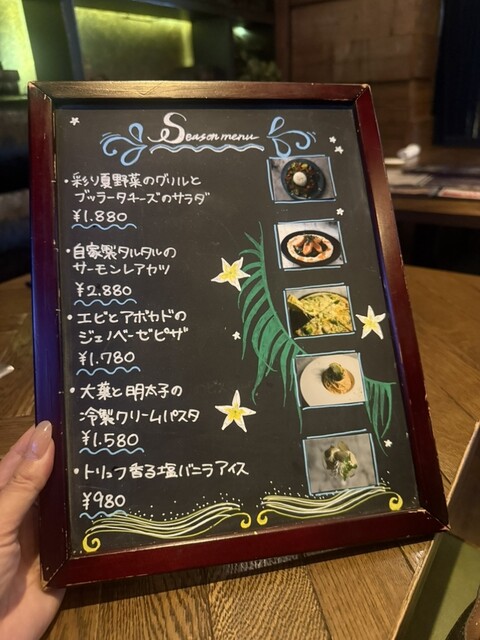 Season menu
・彩り夏野菜のグリルと
ブッラータチーズのサラダ
¥1.880
・自家製タルタルの
サーモンレアカツ
¥2.880
・エビとアボカドの
ジェノベーゼピザ
¥1.780
・大葉と明太子の
冷製クリームパスタ
¥1.580
・トリュフ香る塩バニラアイス
¥980